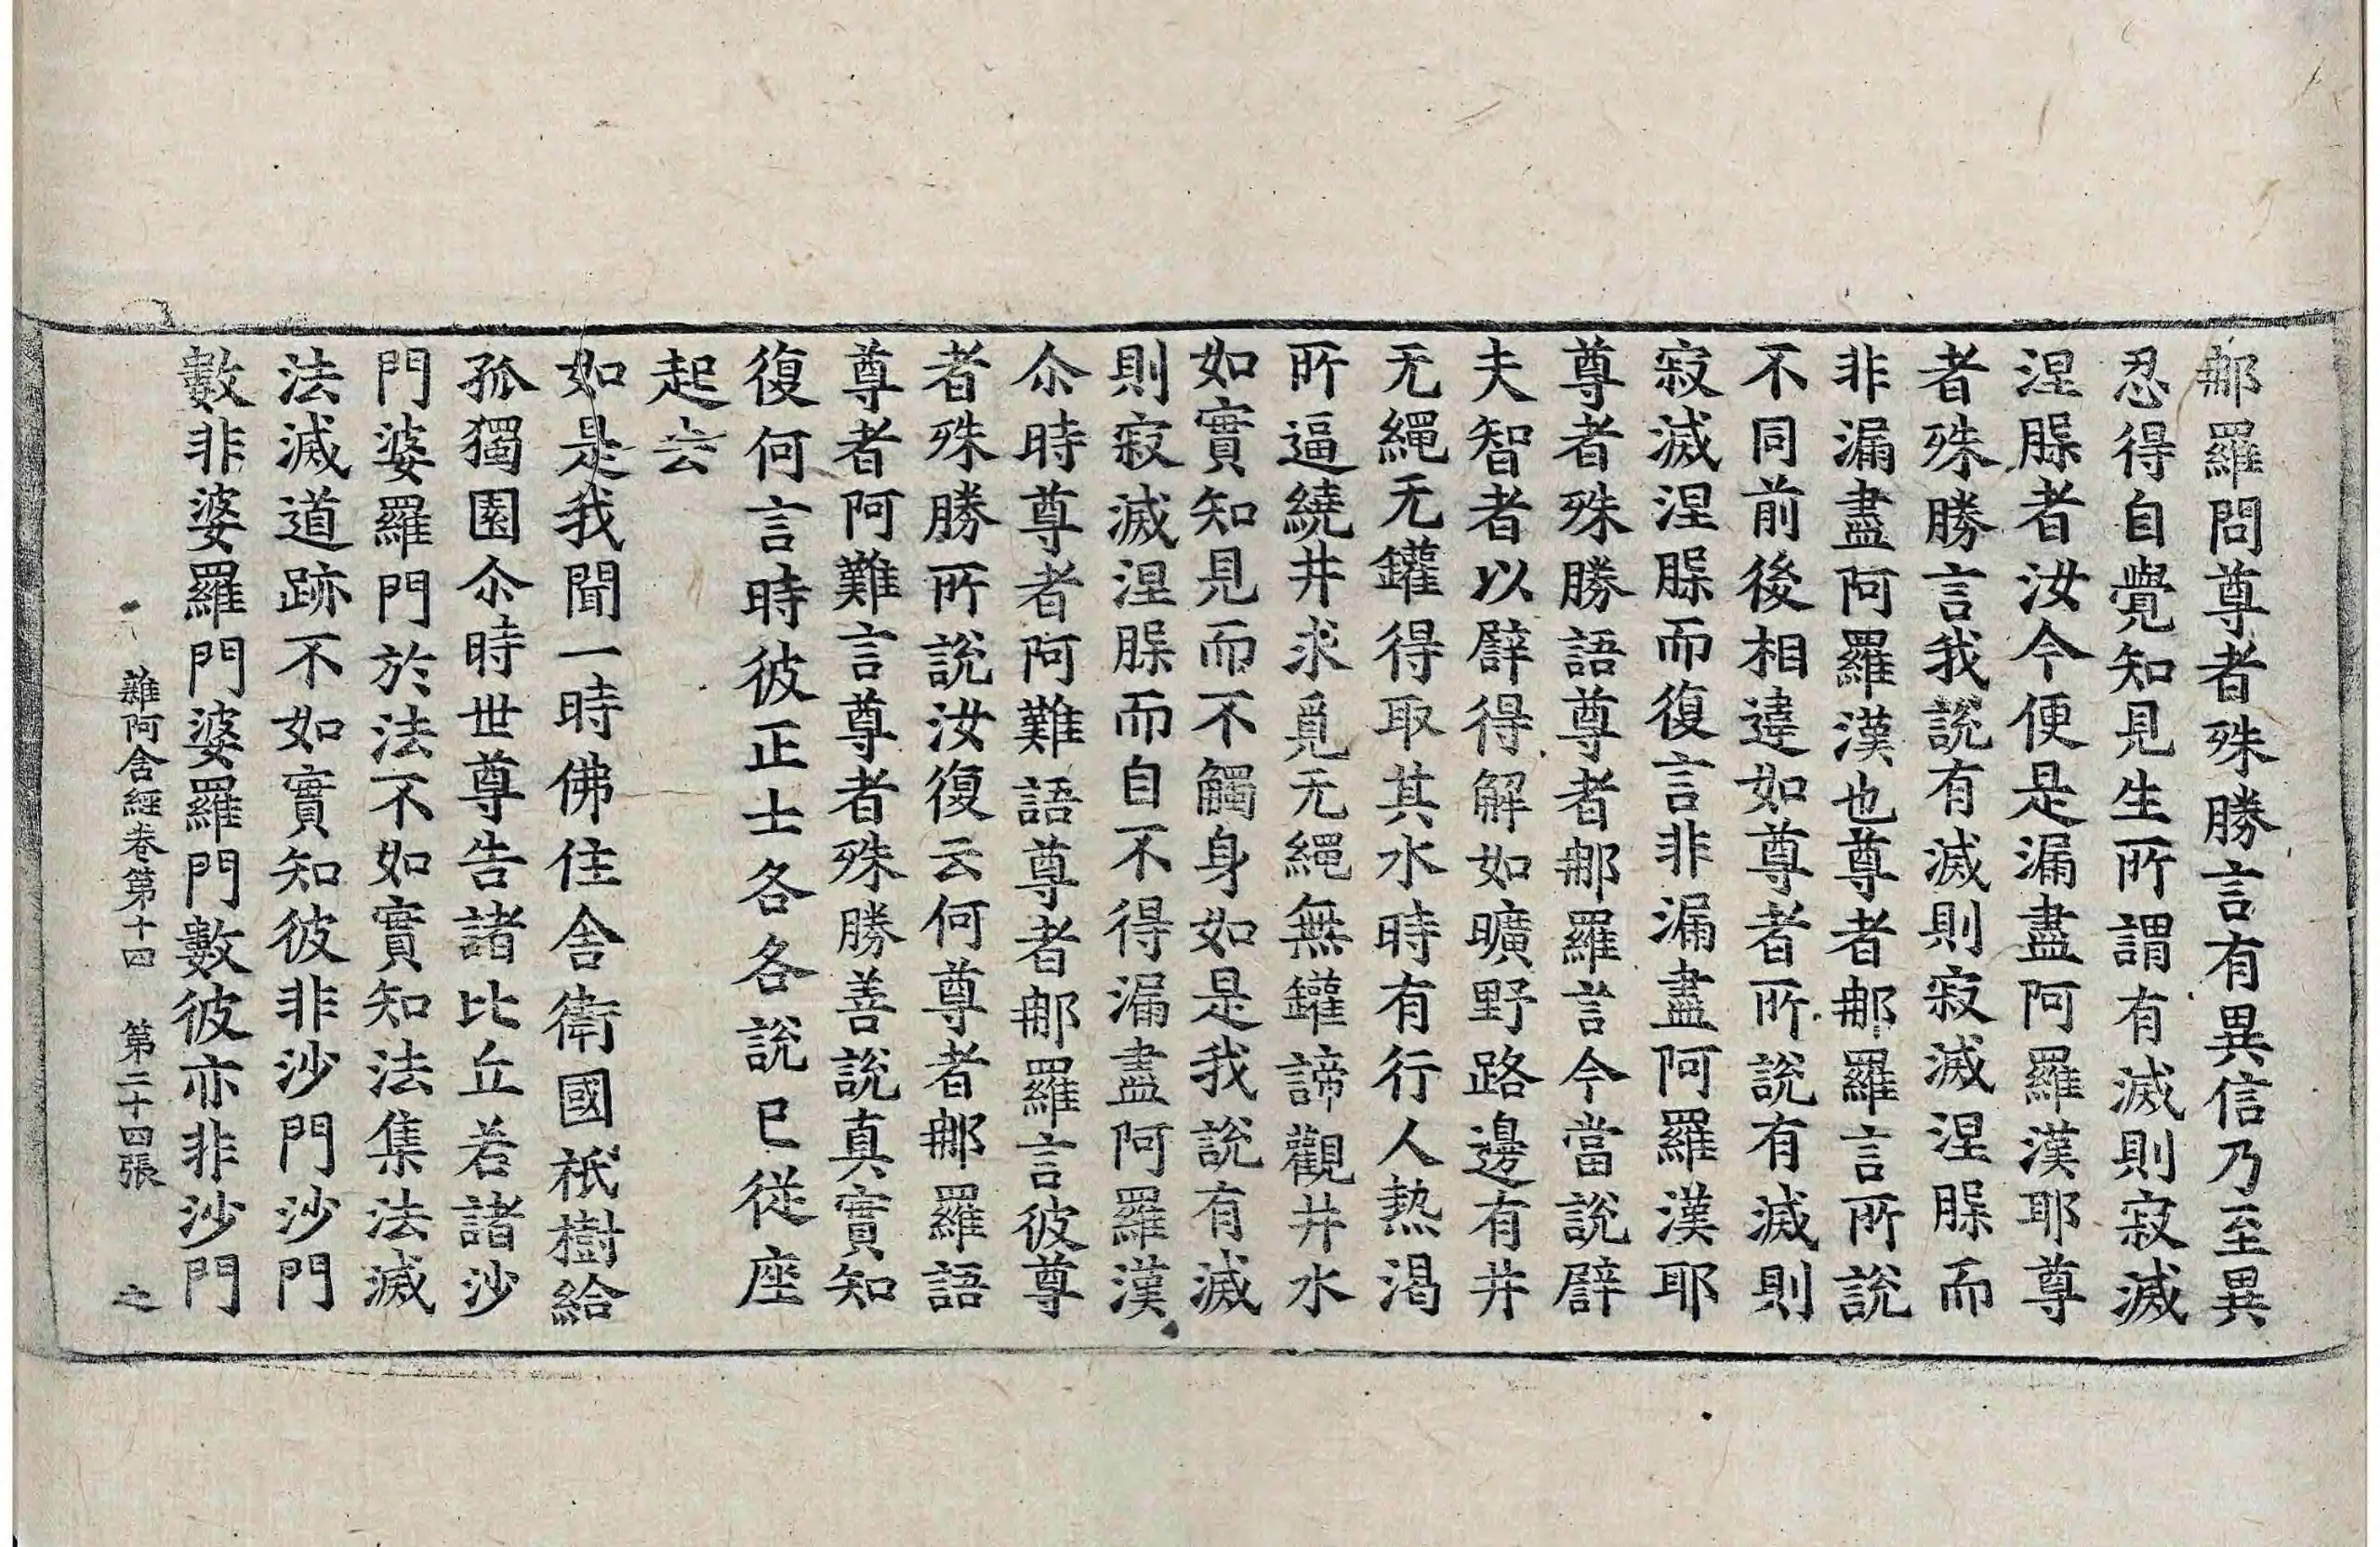 𨚗羅問尊者殊勝言有異信乃至異
忍得自覺知見生所謂有滅則寂滅
涅槃者汝今便是漏盡阿羅漢耶尊
者殊勝言我說有滅則寂滅涅槃而
非漏盡阿羅漢也尊者𨚗羅言所說
不同前後相違如尊者所說有滅則
寂滅涅槃而復言非漏盡阿羅漢耶
尊者殊勝語尊者𨚗羅言今當說辟
夫智者以辟得解如曠野路邊有井
无繩无罐得取其水時有行人熱渴
所逼繞井求覓无繩無罐諦觀井水
如實知見而不觸身如是我說有滅
則寂滅涅槃而自不得漏盡阿羅漢
尒時尊者阿難語尊者𨚗羅言彼尊
者殊勝所說汝復云何尊者𨚗羅語
尊者阿難言尊者殊勝善說真實知
復何言時彼正士各各說已從座
起去
如是我聞一時佛住舍衛國祇樹給
孤獨園尒時世尊告諸比丘若諸沙
門婆羅門於法不如實知法集法滅
法滅道跡不如實知彼非沙門沙門
數非婆羅門婆羅門數彼亦非沙門
雜阿含經卷第十四 第二十四張 之